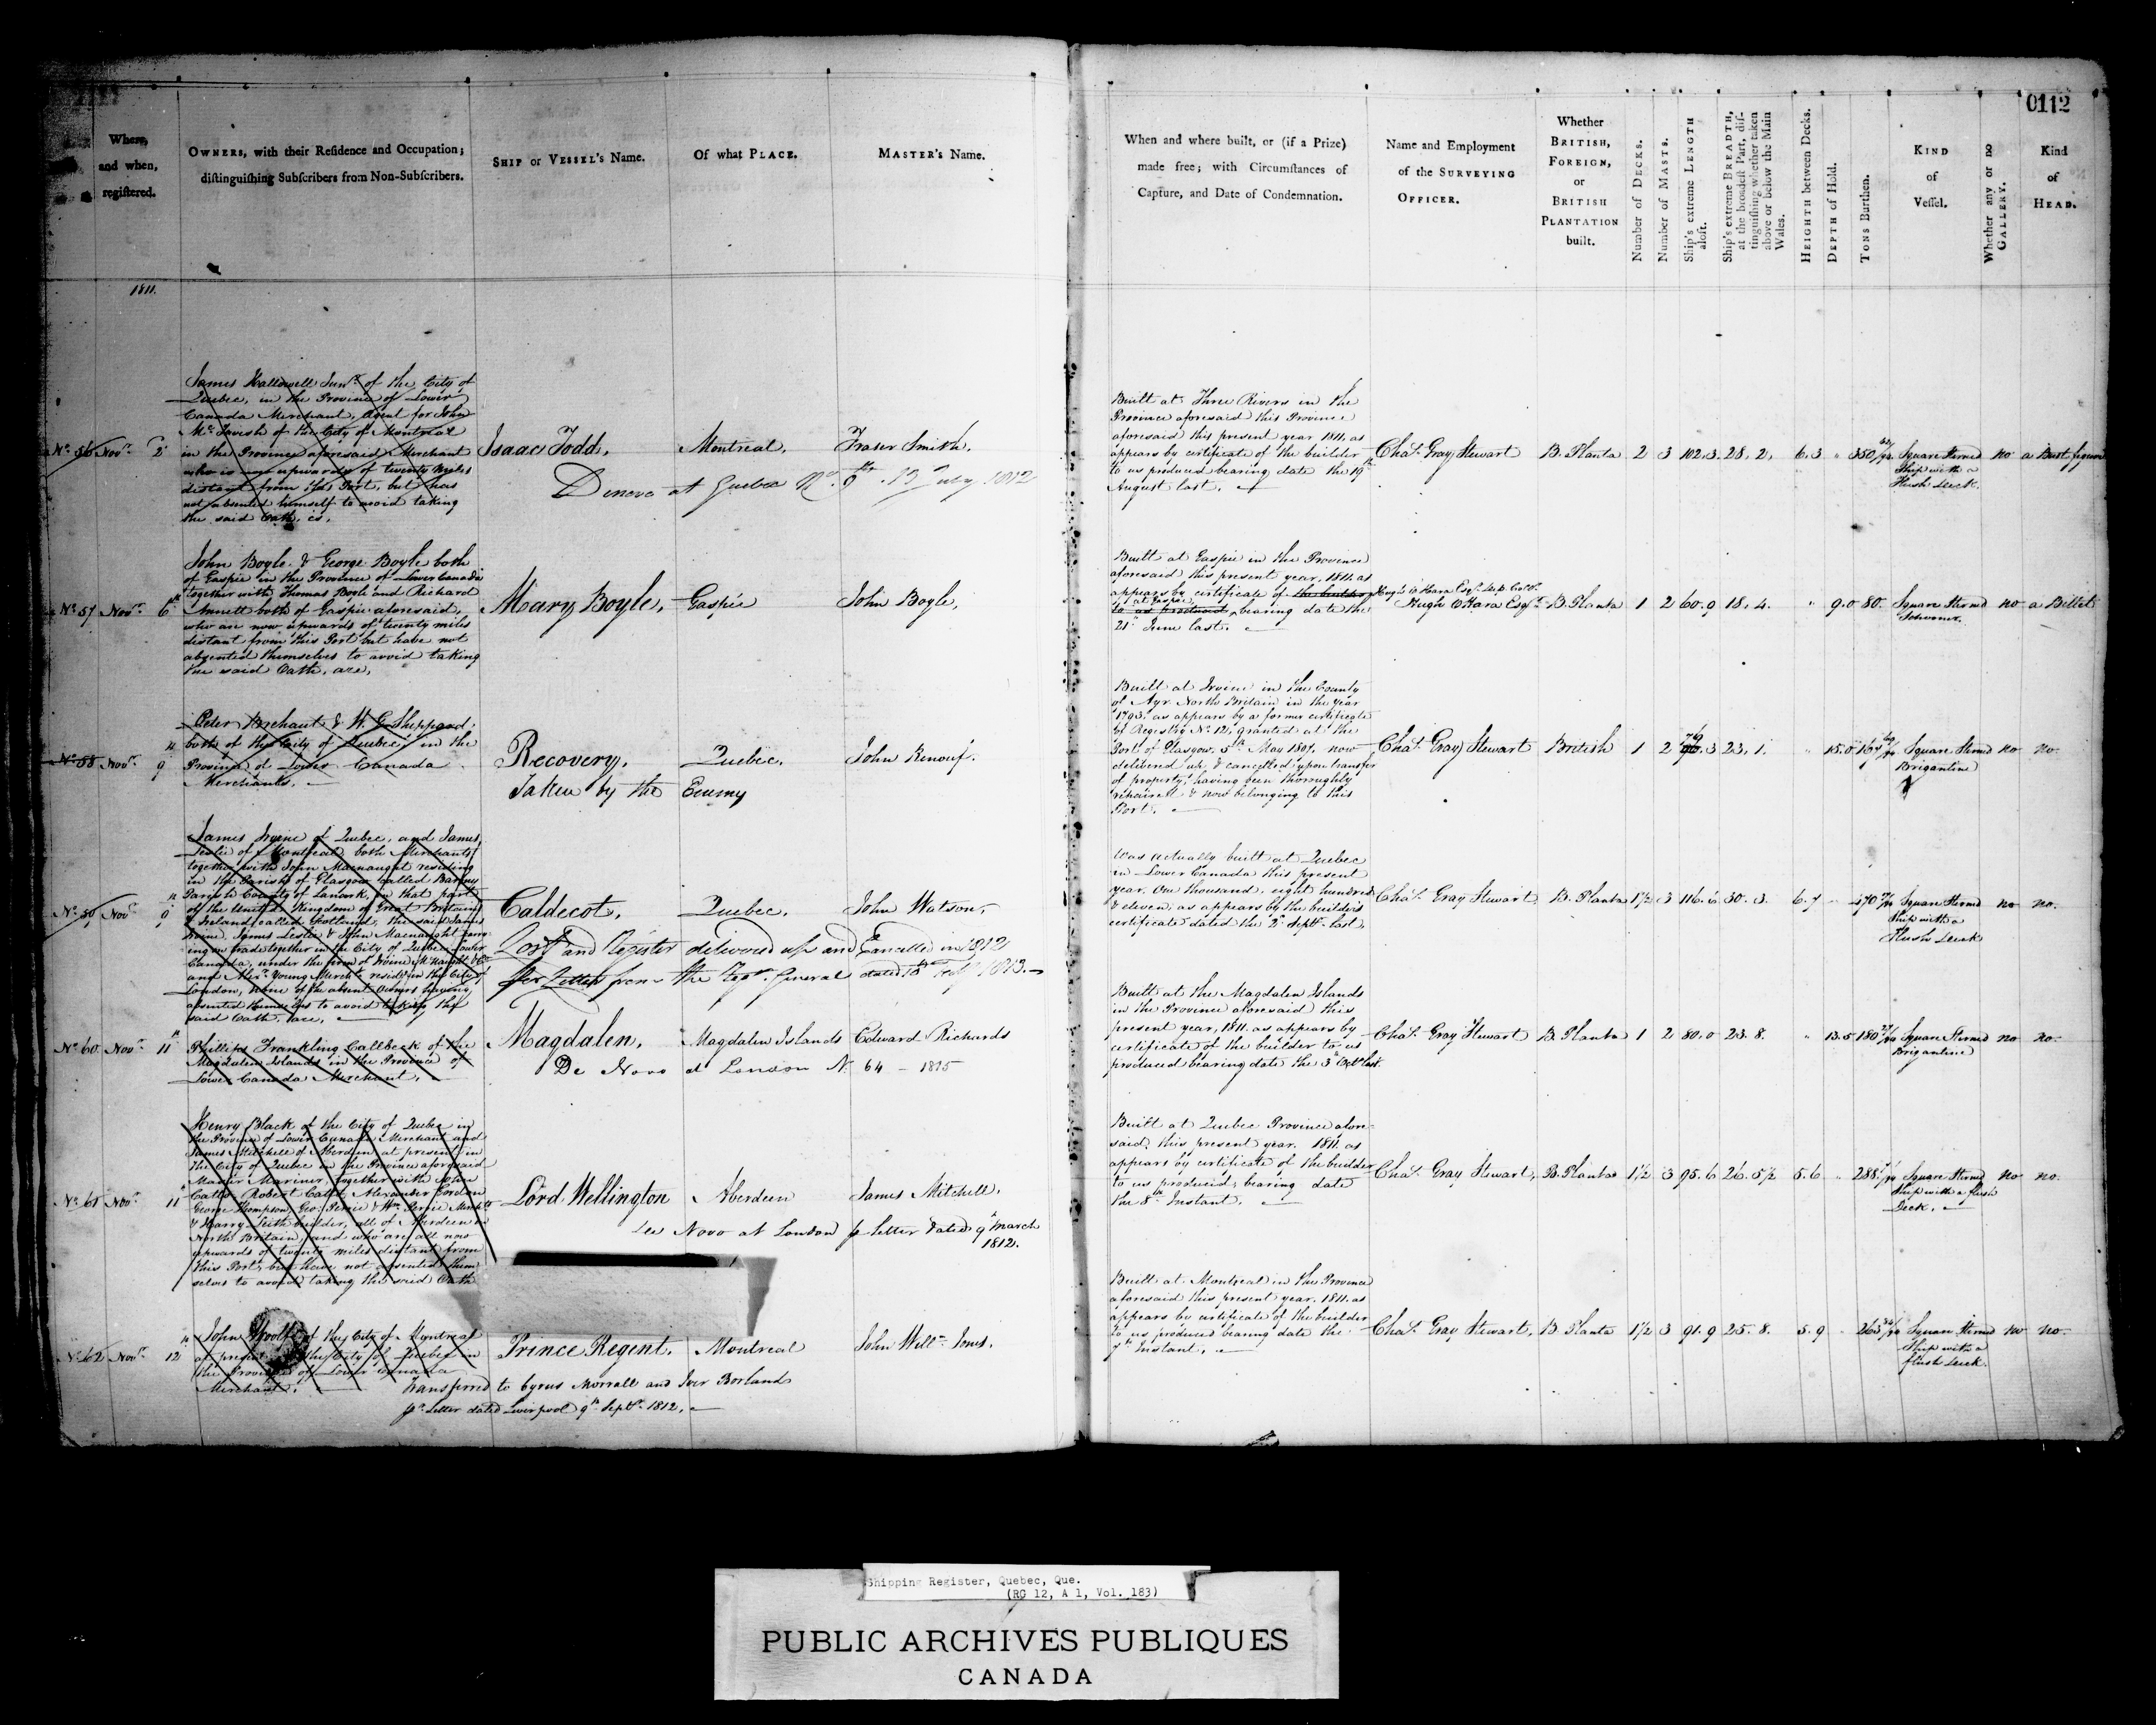 0112
Where, and when, registered.
OWNERS, with their Residence and Occupation; distinguishing Subscribers from Non-Subscribers.
SHIP or VESSEL's Name.
Of what PLACE.
MASTER's Name.
When and where built, or (if a Prize) made free; with Circumstances of Capture, and Date of Condemnation.
Name and Employment of the SURVEYING OFFICER.
Whether BRITISH, FOREIGN, or BRITISH PLANTATION built.
Number of DECKS.
Number of MASTS.
Ship's extreme LENGTH aloft.
Ship's extreme BREADTH, at the broadest Part, distinguishing whether taken above or below the Main Wales.
HEIGHTH between Decks.
DEPTH of Hold.
TONS Burthen.
KIND of Vessel.
Whether any or no GALLERY.
Kind of HEAD.
1811.
No. 56 Novr. 2d
James Hallowell Junr. of the City of
Quebec, in the Province of Lower
Canada Merchant, Agent for John
McTavish of the City of Montreal
in the Province aforesaid Merchant
who is now upwards of twenty Miles
distant from this Port, but has
not absented himself to avoid taking
the said Oath, is,
Isaac Todd, Montreal, Fraser Smith,
Denovo at Quebec No. 9 13 July 1812
Built at Three Rivers in the
Province aforesaid this Province
aforesaid this present year 1811, as
appears by certificate of the builder
to us produced bearing date the 19th
August last.
Chas. Gray Stewart B. Planta 2 3 102.3 28.2. 6.3 " 350 Square Sterned no a Bust figure
Ship with a
Flush Deck.
No. 57 Novr. 6th
John Boyle & George Boyle both
of Gaspie in the Province of Lower Canada
together with Thomas Boyle and Richard
Annett both of Gaspie aforesaid,
who are now upwards of twenty miles
distant from this Port but have not
absented themselves to avoid taking
the said Oath, are,
Mary Boyle, Gaspie John Boyle,
Built at Gaspie in the Province
aforesaid this present year, 1811. as
appears by certificate of the builder
to us produced, bearing date the
21st June last.
Hugh O'Hara Esqr. B. Planta 1 2 60.9 18.4. " 9.0 80. Square Sterned no a Billet
Schooner.
No. 58 Novr. 9th
Peter Brehaut & W. G. Sheppard
both of the City of Quebec in the
Province of Lower Canada
Merchants.
Recovery, Quebec, John Renouf.
Taken by the Enemy
Built at Irvine in the County
of Ayr North Britain in the year
1793. as appears by a former certificate
of Registry No. 12, granted at the
Port of Glasgow, 5th May 1807. now
delivered up & cancelled upon transfer
of property, having been thoroughly
repaired & now belonging to this
Port.
Chas. Gray Stewart British 1 2 79.3 23.1. " 15.0 167 Square Sterned no no.
Brigantine
No. 59 Novr. 9th
James Irvine of Quebec, and James
Leslie of Montreal both Merchants
together with John Macnaught residing
in the Parish of Glasgow called Barony
Parish County of Lanark, in that part
of the United Kingdom of Great Britain
& Ireland called Scotland, the said James
Irvine, James Leslie & John Macnaught carry-
ing on trade together in the City of Quebec Lower
Canada, under the firm of Irvine McNaught & Co.
and Alexr. Young Mercht. residing in the City of
London, none of the absent Owners having
absented themselves to avoid taking the
said Oath, are,
Caldecot, Quebec, John Watson,
Lost and Register delivered up and Cancelled in 1812
per Letter from the Regr. General dated 18th Feby 1813.
Was actually built at Quebec
in Lower Canada this present
year, One thousand, eight hundred
& eleven, as appears by the builders
certificate dated the 2d Septr. last,
Chas. Gray Stewart B. Planta 1½ 3 116.6 30.3. 6.7 470 Square Sterned no no.
Ship with a
Flush Deck
No. 60 Novr. 11th
Phillips Frankling Callbeck of the
Magdalen Islands in the Province of
Lower Canada Merchant.
Magdalen, Magdalen Islands Edward Richards
De Novo at London No. 64 - 1815
Built at the Magdalen Islands
in the Province aforesaid this
present year, 1811. as appears by
certificate of the builder to us
produced bearing date the 3d Octr. last.
Chas. Gray Stewart B. Planta 1 2 80.0 23.8. " 13.5 180 Square Sterned no no.
Brigantine
No. 61 Novr. 11th
Henry Black of the City of Quebec in
the Province of Lower Canada Merchant and
James Mitchell of Aberdeen at present in
the City of Quebec in the Province aforesaid
Master Mariner, together with John
Catto, Robert Catto, Alexander Gordon
George Thompson, Geo. Pirrie & Wm. Pirrie Mercht.
& Harry Leith builder, all of Aberdeen in
North Britain, and who are all now
upwards of twenty miles distant from
this Port, but have not absented them-
selves to avoid taking the said Oath
Lord Wellington Aberdeen James Mitchell,
De Novo at London pr letter dated 9th March
1812.
Built at Quebec Province afore-
said, this present year. 1811. as
appears by certificate of the builder
to us produced, bearing date
the 8th Instant.
Chas. Gray Stewart, B. Planta 1½ 3 95.6 26.5½ 5.6 " 288 Square Sterned no no.
Ship with a flush
Deck.
No. 62 Novr. 12th
John Woolf of the City of Montreal
at present in the City of Quebec in
the Province of Lower Canada
Merchant.
Prince Regent, Montreal John Willm. Jones.
Transferred to Cyrus Morrall and Iver Borland
pr. Letter dated Liverpool 9th Septr. 1812.
Built at Montreal in the Province
aforesaid this present year. 1811. as
appears by certificate of the builder
to us produced bearing date the
7th Instant.
Chas. Gray Stewart, B. Planta 1½ 3 91.9 25.8. 5.9 263 Square Sterned no no.
Ship with a
flush Deck.
Shipping Register, Quebec, Que.
(RG 12, A 1, Vol. 183)
PUBLIC ARCHIVES PUBLIQUES
CANADA